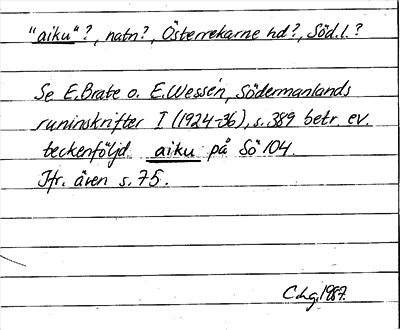 "aiku"?, natn?, Österrekarne hd?, Söd.l.?
Se E.Brate o. E.Wessén, Södermanlands
runinskrifter I (1924-36), s. 389 betr. ev.
teckenföljd aiku på Sö 104.
Jfr. även s. 75.
C Lg. 1987.